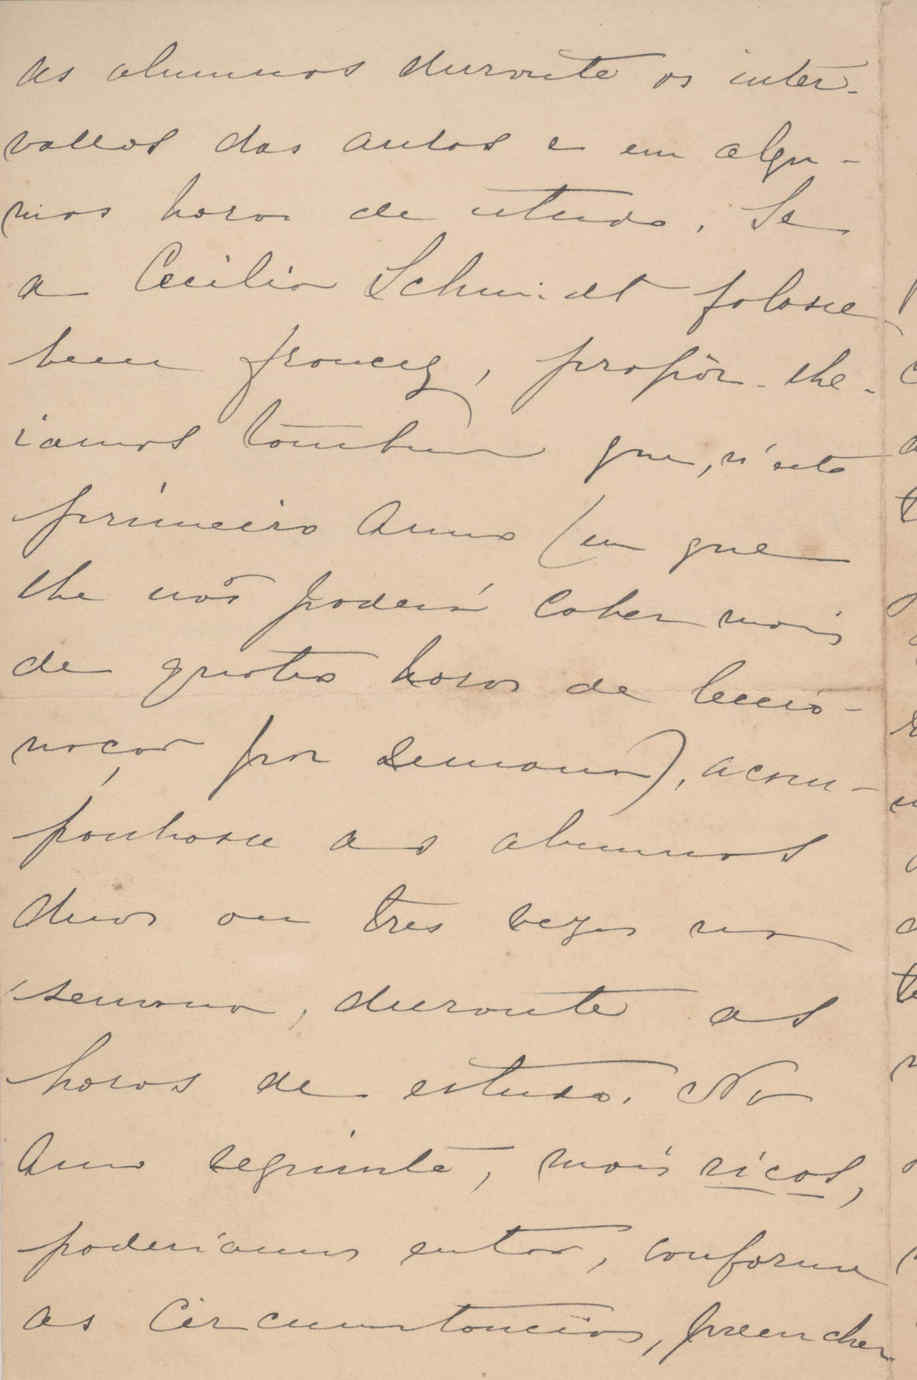 as alumnas durante os inter-
vallos das aulas e em algu-
mas horas de estudo. Se
a Cecilia Schmidt falasse
bem francez, propôr-lhe-
iamos tambem que, n'este
primeiro anno (em que
lhe não poderá caber mais
de quatro horas de leccio-
nação por semana), acom-
panhasse as alumnas
duas ou tres vezes na
semana, durante as
horas de estudo. No
anno seguinte, mais ricos,
poderiamos então, conforme
as circumstancias, preencher